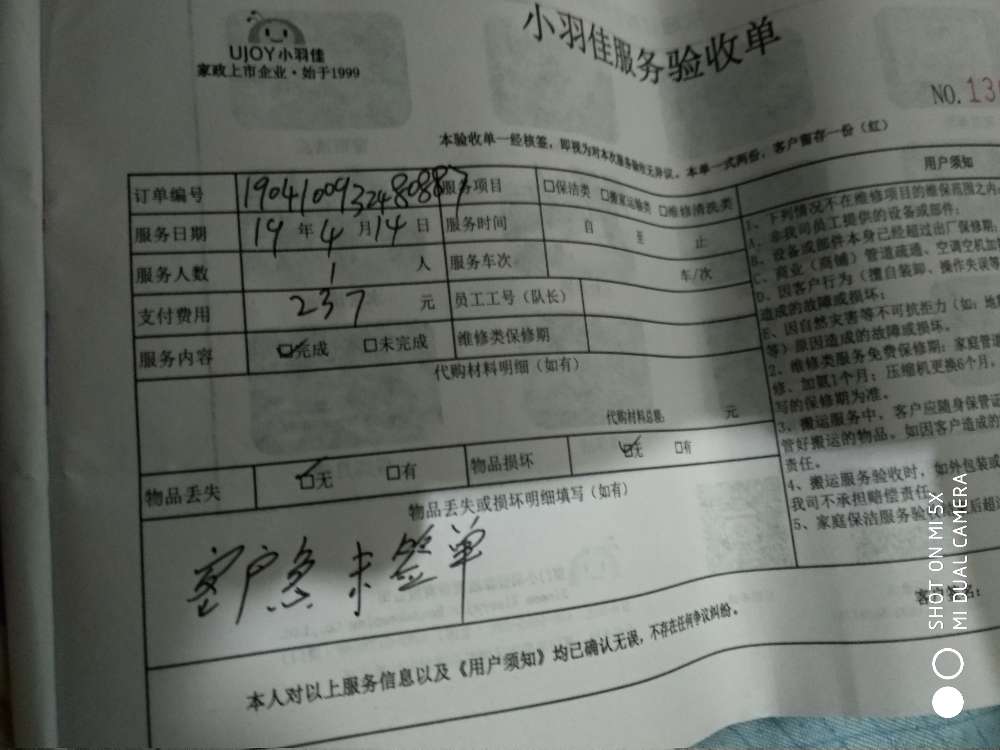 UJOY小羽佳
家政上市企业·始于1999
小羽佳服务验收单
NO.13
本验收单一经核签，即视为对本次服务验收无异议。本单一式两份，客户留存一份（红）
订单编号 1904100932480887 服务项目 □保洁类 □搬家运输类 □维修清洗类
服务日期 19 年 4 月 14 日 服务时间 自 至 止
服务人数 1 人 服务车次 车/次
支付费用 237 元 员工工号（队长）
服务内容 ☑完成 □未完成 维修类保修期
代购材料明细（如有）
代购材料总额: 元
物品丢失 ☑无 □有 物品损坏 ☑无 □有
物品丢失或损坏明细填写（如有）
客户急未签单
本人对以上服务信息以及《用户须知》均已确认无误，不存在任何争议纠纷。
用户须知
1、下列情况不在维修项目的维保范围之内
A、非我司员工提供的设备或部件;
B、设备或部件本身已经超过出厂保修期;
C、商业（商铺）管道疏通、空调空机加
D、因客户行为（擅自装卸、操作失误等
造成的故障或损坏;
E、因自然灾害等不可抗拒力（如: 地
等）原因造成的故障或损坏。
2、维修类服务免费保修期: 家庭管道
修、加氟1个月; 压缩机更换6个月。
写的保修期为准。
3、搬运服务中，客户应随身保管
管好搬运的物品。如因客户造成的
责任。
4、搬运服务验收时，如外包装或
我司不承担赔偿责任。
5、家庭保洁服务验收 后超
客户签名:
SHOT ON MI 5X
MI DUAL CAMERA